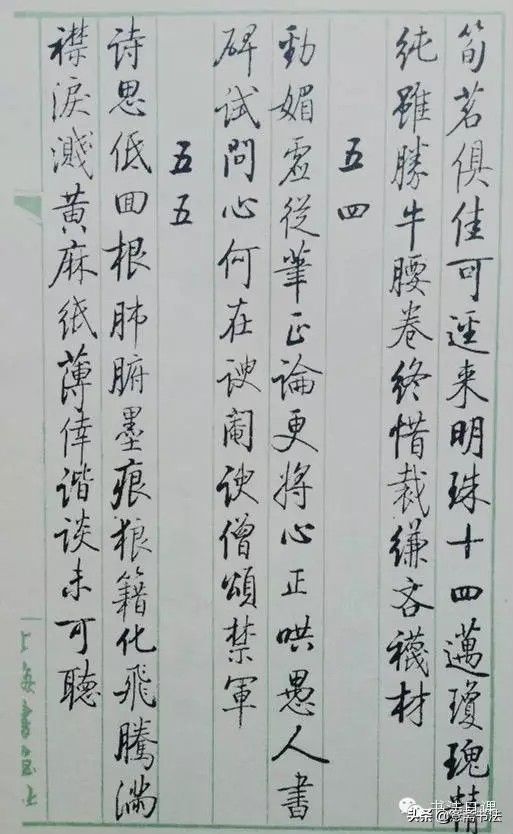 筍茗俱佳可逕来明珠十四邁瓊瑰精
純雖勝牛腰卷終惜裁縑吝襪材
五四
勁媚虛從筆正論更將心正哄愚人書
碑試問心何在諛閹諛僧頌禁軍
五五
詩思低回根肺腑墨痕狼籍化飛騰滿
襟淚濺黄麻紙薄倖諧談未可聽
书法日课
头条